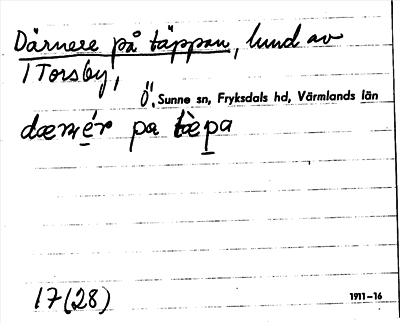 Därnere på täppan, lund av
1 Torsby,
Ö. Sunne sn, Fryksdals hd, Värmlands län
dærnér pa tèpa
17(28)
1911-16